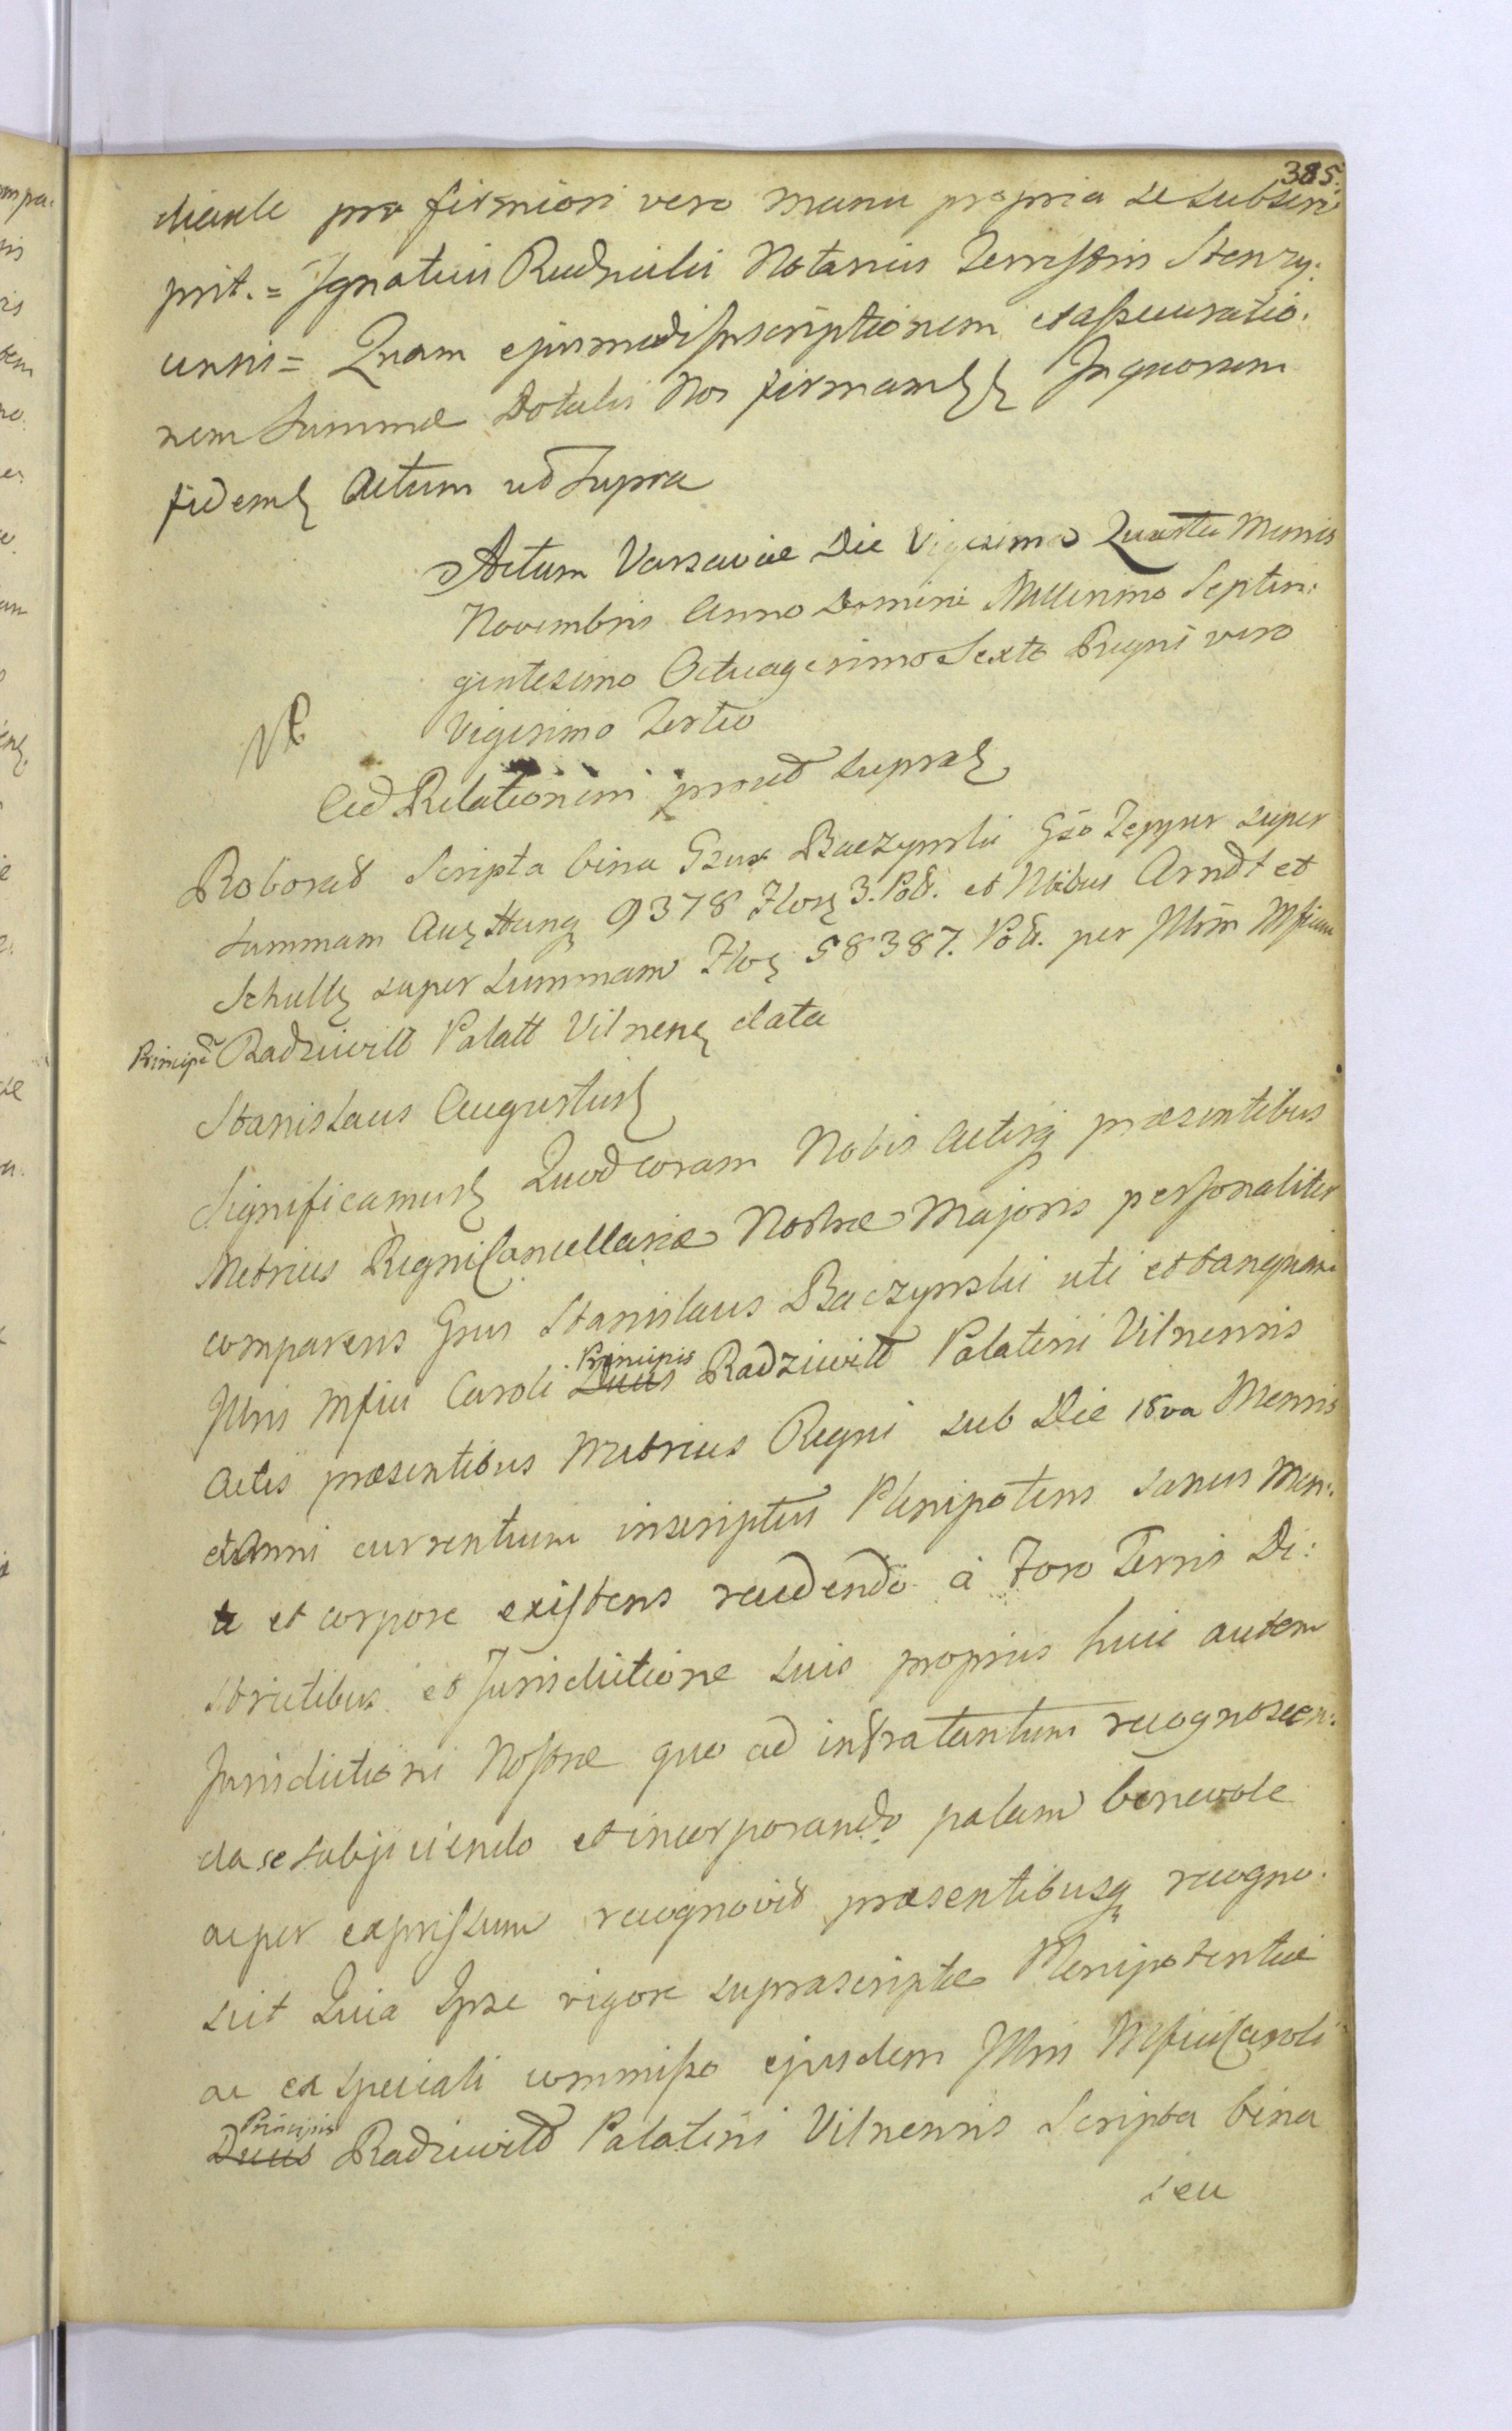 385.
diante pro firmiori vero manu propria se subscri
psit. = Ignatius Rudnicki Notarius Terrestris Stenzy:
censis = Quam ejusmodi Inscriptionem et assecuratio:
nem Summæ Dotalis Nos firmam In quorum
fidem Actum ut Supra
Actum Varsaviæ Die Vigesima Quarta Mensis
Novembris Anno Domini Millesimo Septin:
gentesimo Octuagesimo Sexto Regni vero
Vigesimo Tertio
Ad Relationem prout supra
Roborat Scripta bina Gsus Baczynski Gso Tepper super
summam Aur Hung 9378 Flor 3. Pol. et Nbibus Arndt et
Schultz super summam Flor 58387. Pol. per Illrm Mficum
Principe Radziwill Palatt Vilnens data
Stanislaus Augustus
Significamus Quod coram Nobis Actisq præsentibus
Metrices Regni Cancellariæ Nostræ Majoris personaliter
comparens Gsus Stanislaus Baczynski uti et tanquam
Illris Mfici Caroli Ducis Principis Radziwill Palatini Vilnensis
Actis præsentibus Metrices Regni sub Die 18va Mensis
et Anni currentium inscriptus Plenipotens sanus Men:
te et corpore existens recedendo à Foro Terris Di:
strictibus et Jurisdictione suis propriis huic autem
Jurisdictioni Nostræ quo ad infra tantum recognoscen:
da se subjiciendo et incorporando palam benevole
ac per expressum recognovit præsentibusq recogno:
scit Quia Ipse vigore suprascriptæ Plenipotentiæ
ac ex speciali commisso ejusdem Illris Mfici Caroli
Ducis Principis Radziwill Palatini Vilnensis Scripta bina
seu